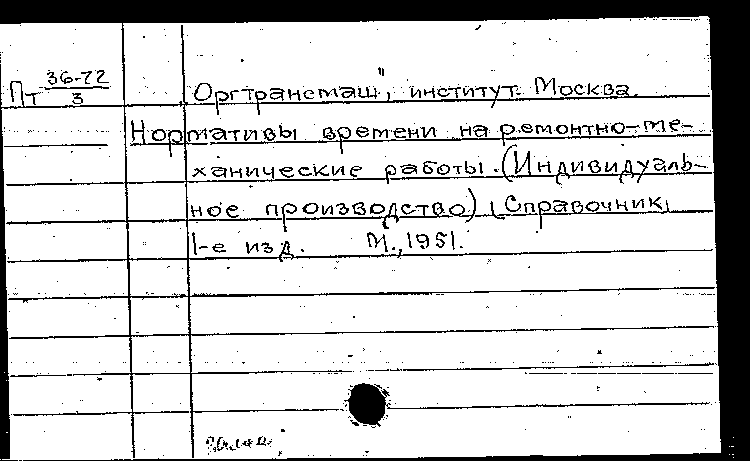 36-72
Пт 3
Оргтрансмаш", институт. Москва.
Нормативы времени на ремонтно-ме-
ханические работы. (Индивидуаль-
ное производство) (Справочник)
1-е изд. М., 1951.